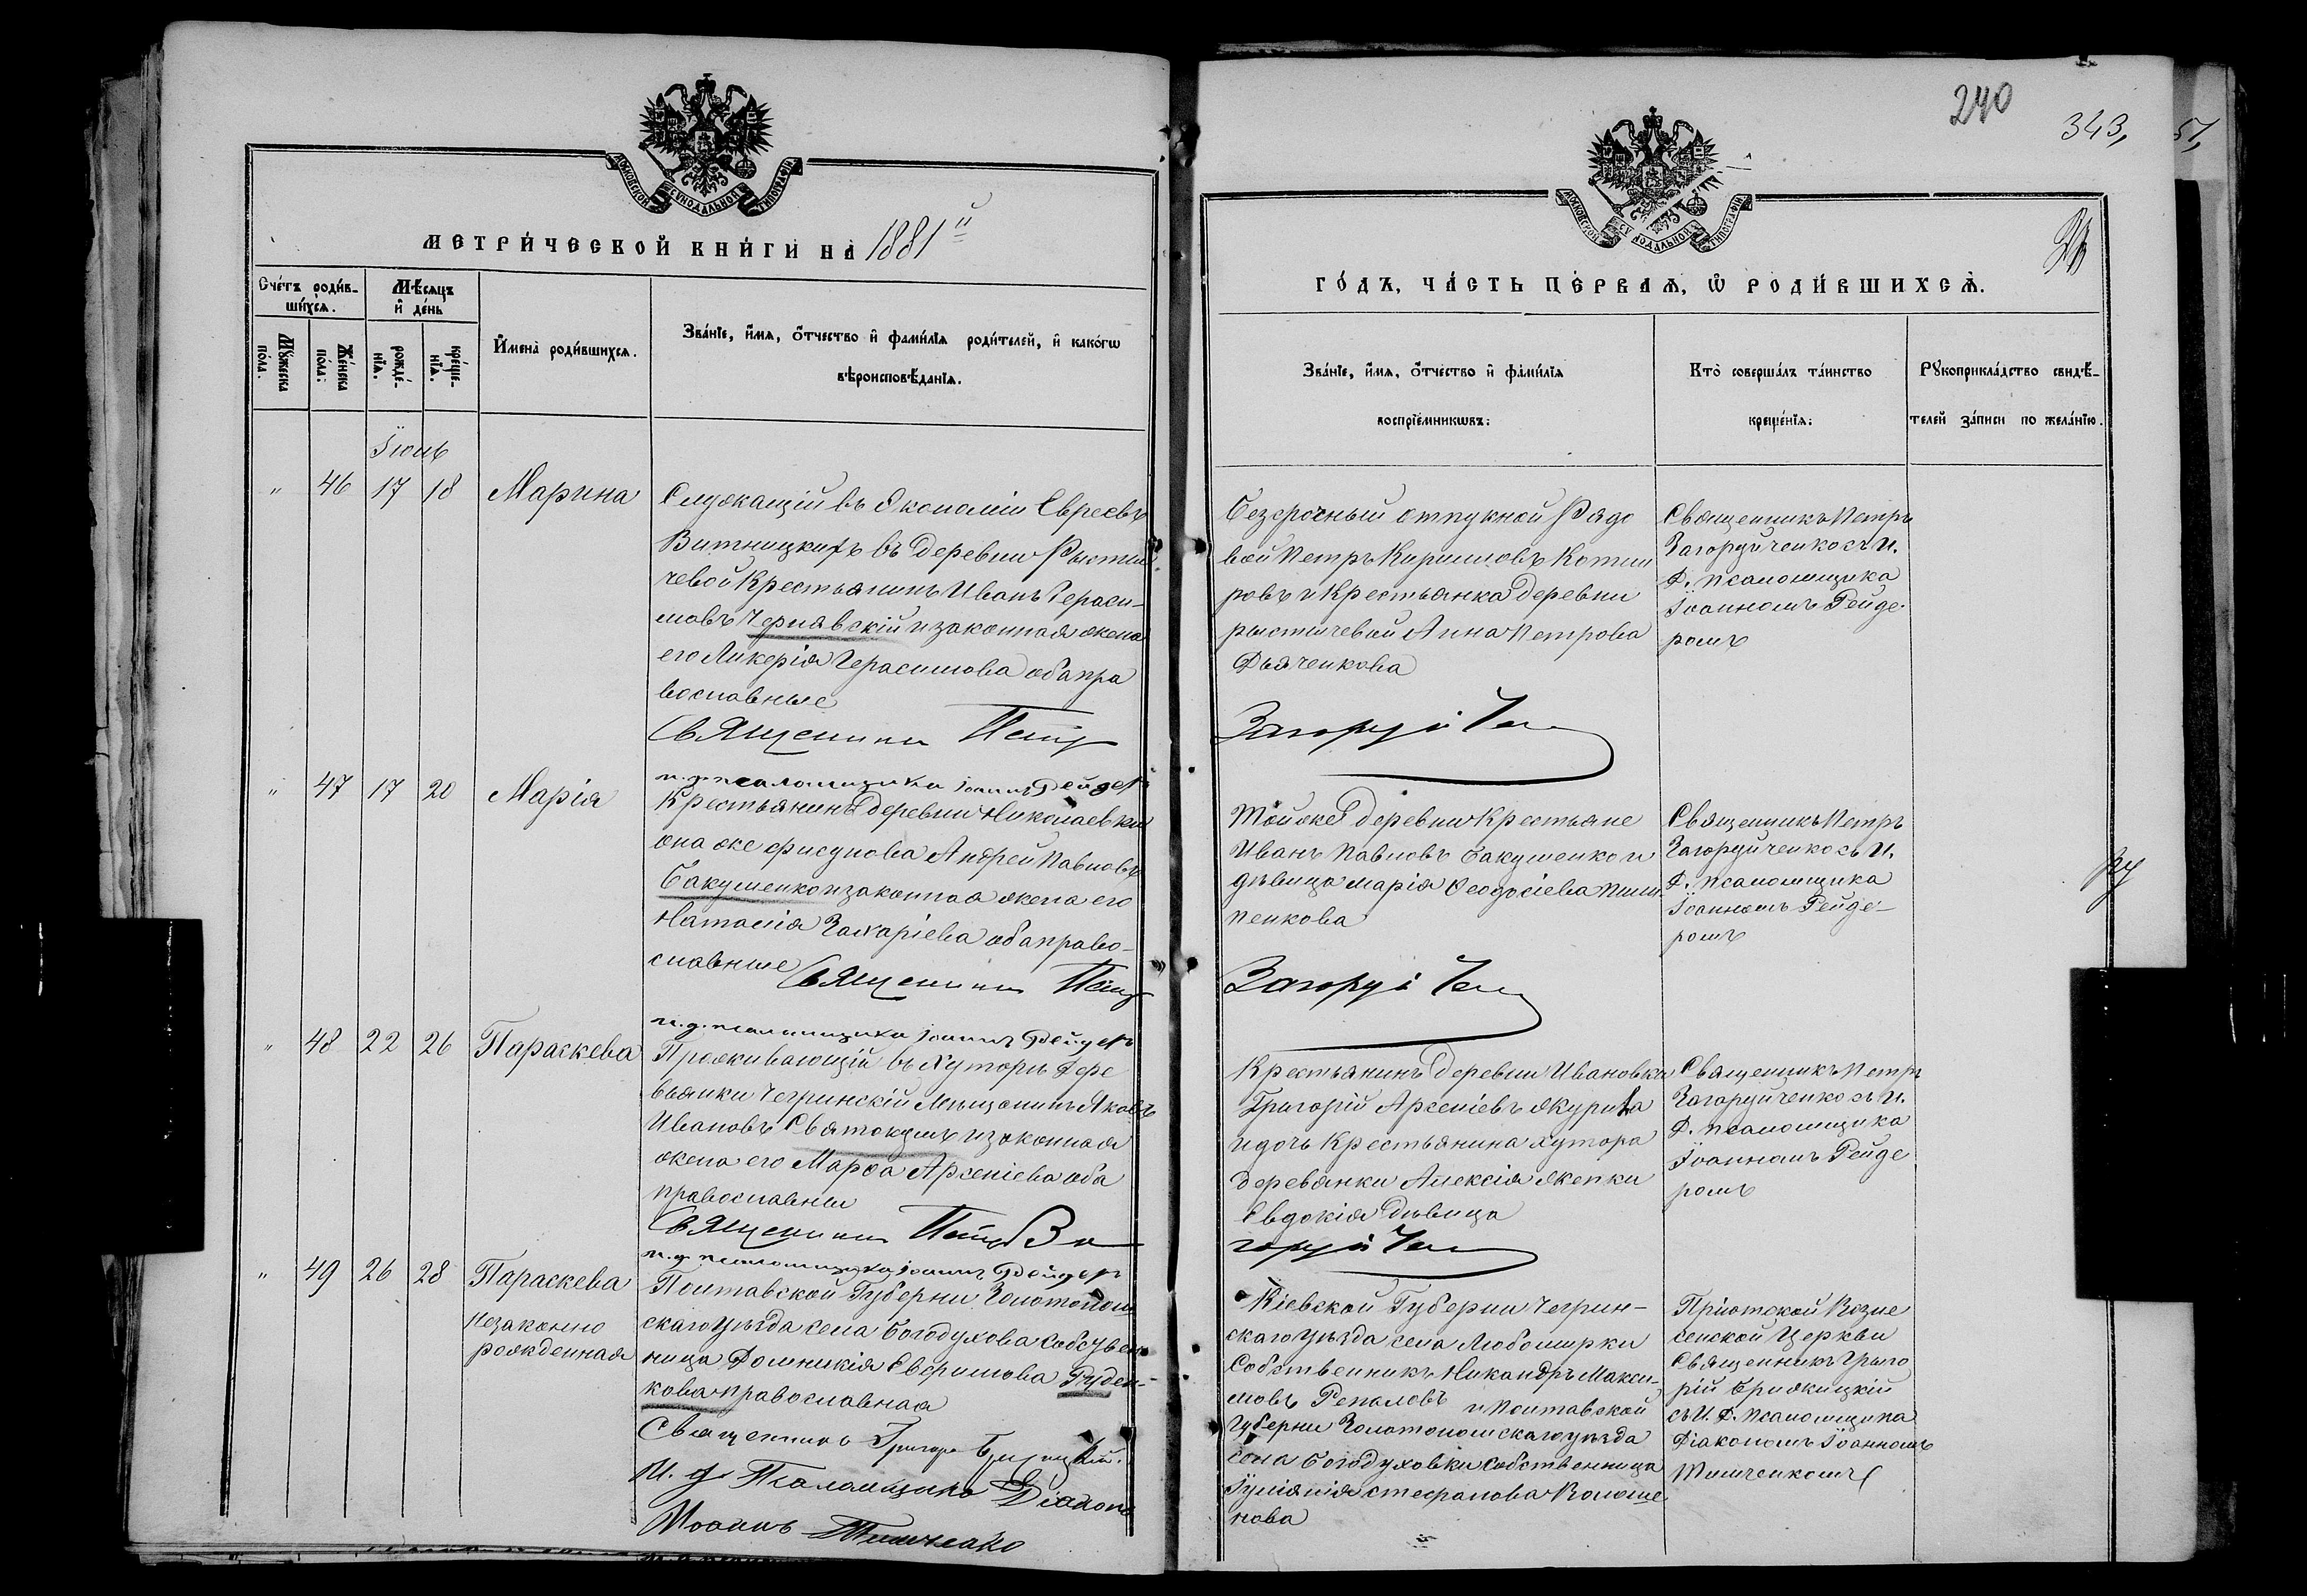 МОСКОВСКОЙ СУНОДАЛЬНОЙ ТИПОГРАФІИ
МЕТРИ́ЧЕСКОЙ КНИ́ГИ НА 1881й
Сче́тъ роди́в-
ши́хсѧ.
Мѣ́сѧцъ
и҆ де́нь
Мꙋ́жеска
по́ла.
Же́нска
по́ла:
рожде́-
нїѧ.
креще́-
нїѧ.
И҆мена̀ роди́вшихсѧ.
Зва́нїе, и҆́мѧ, ѻ҆́тчество и҆ фами́лїѧ роди́телей, и҆ како́гѡ
вѣроисповѣ́данїѧ.
Іюнь
" 46 17 18 Марина
Служащій въ Экономіи Евреевъ
Витницкихъ въ деревни Рысти
чевой Крестьянинъ Иванъ Гераси-
мовъ Чернявскій и законная жена
его Ликерія Герасимова оба пра
вославные
Священникъ Петръ
и. д. псаломщика Іоаннъ Рейдеръ
" 47 17 20 Марія
Крестьянинъ деревни Николаевки
она же Фисунова Андрей Павловъ
Бакуменко и законная жена его
Наталія Захаріева оба право-
славные
Священникъ Петръ
и. д. псаломщика Іоаннъ Рейдеръ
" 48 22 26 Параскева
Проживающій въ Хуторѣ Дере
вьянки Чегринскій Мѣщанинъ Яковъ
Ивановъ и законная
жена его Марфа Арсеніева оба
православны
Священникъ Петръ За
и. д. псаломщика Іоаннъ Рейдеръ
" 49 26 28 Параскева
незаконно
рожденная
Полтавской Губерни Золотонош
скаго уѣзда села Богодухова Собствен
ница Домникія Евфимова Руден-
кова православная
Священникъ Григорій
И. д. Псаломщика Діаконъ
Іоаннъ Тимченко
240
343,
51,
МОСКОВСКОЙ СУНОДАЛЬНОЙ ТИПОГРАФІИ
ГО́ДЪ, ЧА́СТЬ ПЕ́РВАѦ, Ѽ РОДИ́ВШИХСѦ.
Зва́нїе, и҆́мѧ, ѻ҆́тчество и҆ фами́лїѧ
воспрїе́мникѡвъ:
Кто̀ соверша́лъ та́инство
креще́нїѧ:
Рꙋкоприкла́дство свидѣ́-
телей за́писи по жела́нїю.
Безсрочный отпускной Рядо
вой Петръ Кириловъ
ровъ и Крестьянка деревни
рыстичевой Анна Петрова
Дьяченкова
Загоруйченко
Священникъ Петръ
Загоруйченко съ И.
Д. псаломщика
Іоанномъ Рейде-
ромъ
Той же деревни Крестьяне
Иванъ Павловъ Бакуменко и
дѣвица Марія Феодосіева Пили
пенкова
Загоруйченко
Священникъ Петръ
Загоруйченко съ И.
Д. псаломщика
Іоанномъ Рейде-
ромъ
Крестьянинъ деревни Ивановки
Григорій Арсеніевъ
и дочь Крестьянина хутора
деревянки Алексія
Евдокія дѣвица
горуйченко
Священникъ Петръ
Загоруйченко съ И.
Д. псаломщика
Іоанномъ Рейде
ромъ
Кіевской Губерни Чегрин-
скаго уѣзда села Любомирки
Собственникъ Никандръ Макси-
мовъ Репаловъ и Полтавской
Губерни Золотоношскаго уѣзда
села Богодуховки собственница
Іуліанія Стефанова
нова
Пріютской Возне
сенской Церкви
Священникъ Григо
рій
съ И. Д. псаломщика
Діакономъ Іоанномъ
Тимченкомъ